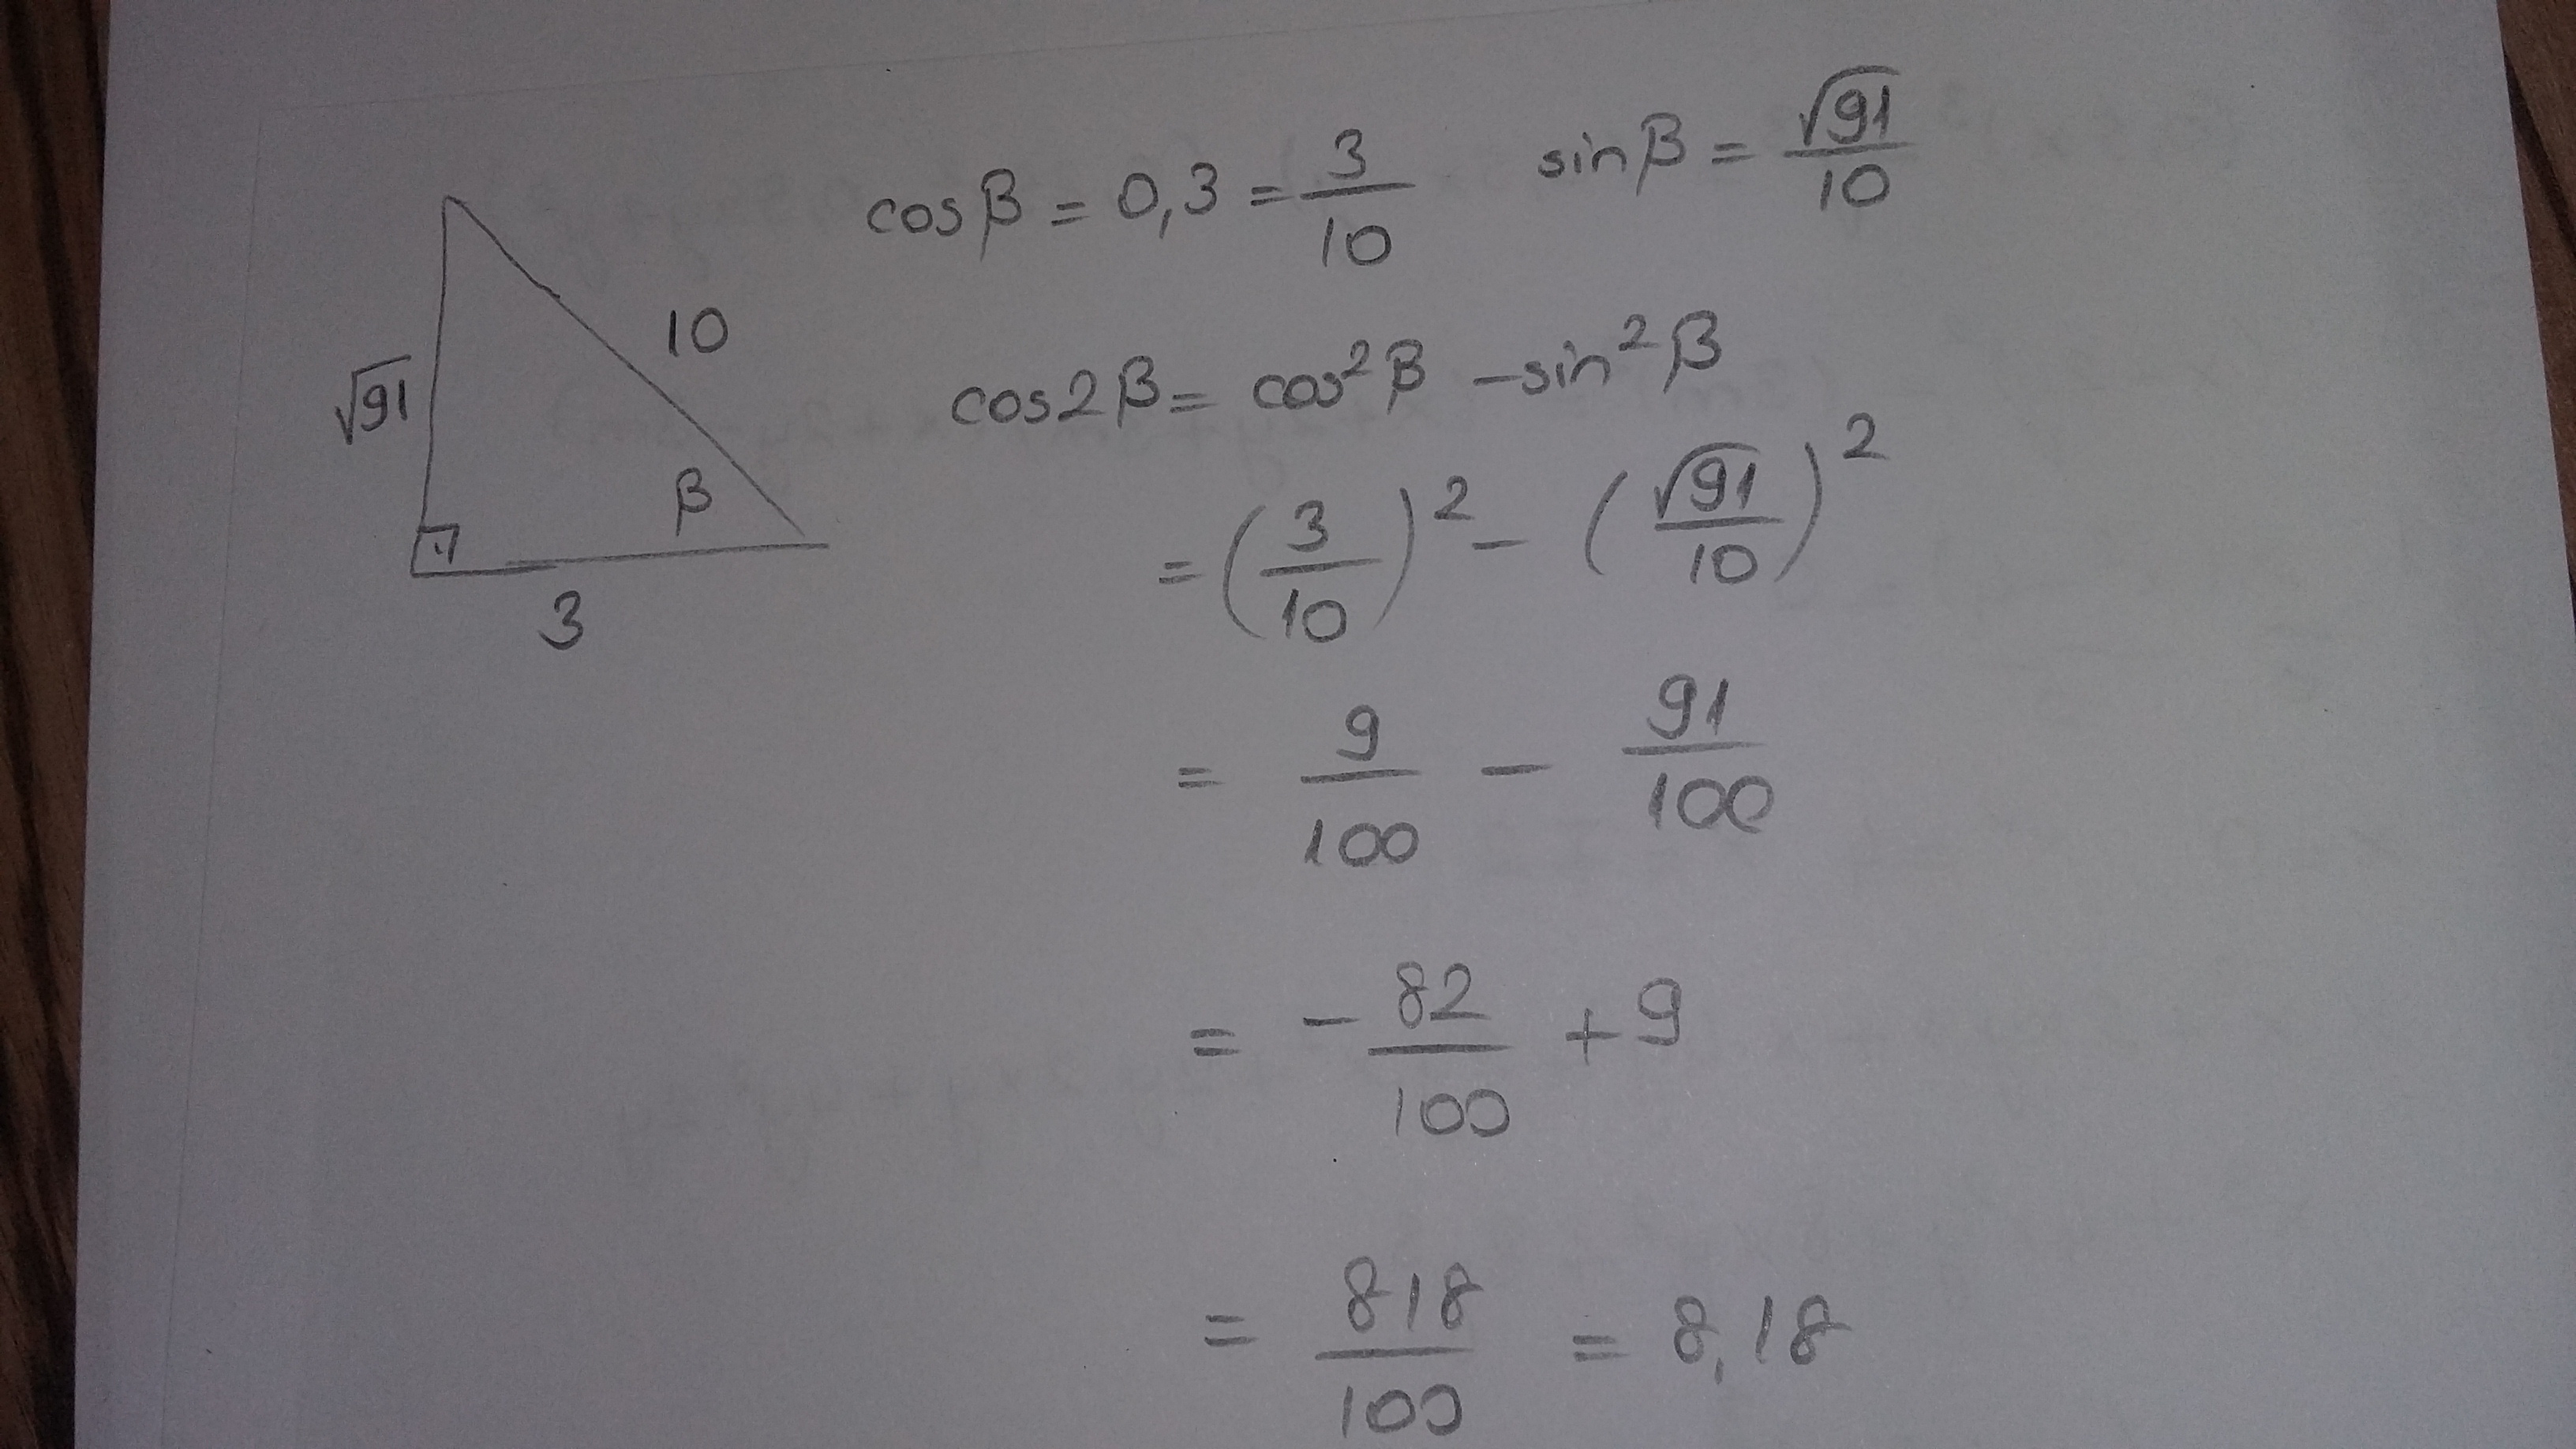 cosβ = 0,3 = 3/10 sinβ = √91/10
√91
10
β
3
cos2β = cos²β - sin²β
= (3/10)² - (√91/10)²
= 9/100 - 91/100
= - 82/100 + 9
= 818/100 = 8,18